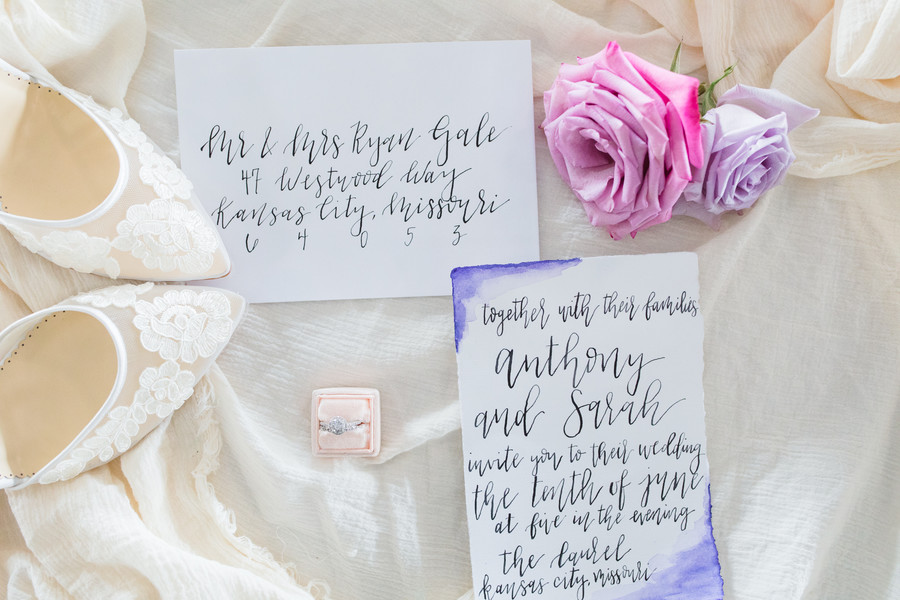 Mr & Mrs Ryan Gale
47 Westwood Way
Kansas City, Missouri
6 4 0 5 3
together with their families
anthony
and Sarah
invite you to their wedding
the tenth of june
at five in the evening
the Laurel
kansas city, missouri